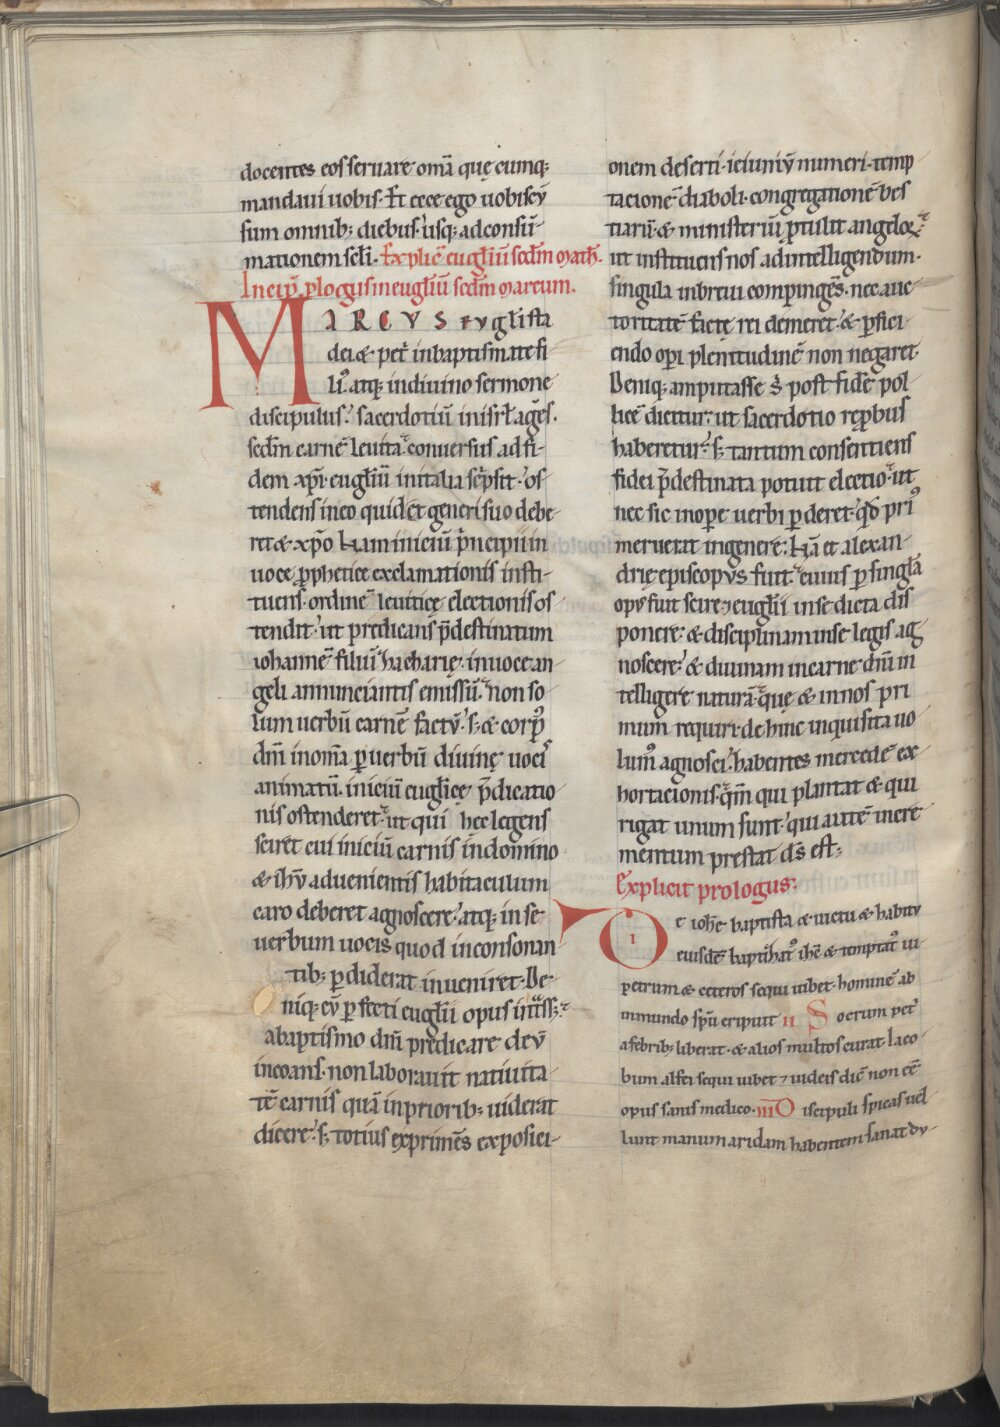 docentes eos seruare om̅a quę cumq;
mandaui uobis. Et ecce ego uobiscū
sum omnib; diebus. usq; ad consū-
mationem sclī. Explic̅ eugl̅iū scdm̅ Math̅.
Incip̅ p̅logus in eugl̅iū scdm̅ Marcum.
MARCVS eugl̅ista
dei & petr̅ in baptismate fi
li᷒. atq; in diuino sermone
discipulus. sacerdotiū in isrl̅ agēs.
scdm̅ carnē leuita. conuersus ad fi-
dem xp̅i. eugl̅iū in italia sc̅psit. os-
tendens in eo quid et generi suo debe-
ret & xp̅o. Nam iniciū p̅ncipii in
uoce p̅phetice exclamationis insti-
tuens. ordinē leuiticę electionis os-
tendit. ut predicans p̅destinatum
iohannē filiū zacharię. in uoce an-
geli annunciantis emissū. non so
lum uerbū carnē factū. s; & corp᷒
dn̅i in om̅a p̲ uerbū diuinę uocis
animatū. iniciū eugl̅icę p̅dicatio
nis ostenderet. ut qui hec legens
sciret cui iniciū carnis in domino
& ihū aduenientis habitaculum
caro deberet agnoscere. atq; in se
uerbum uocis quod in consonan-
tib; p̲diderat inueniret. De-
niq; & p̲fecti eugl̅ii opus intrās;
a baptismo dn̅i predicare deū
incoans. non laborauit natiuita-
tē carnis quā in priorib; uiderat
dicere. s; totius exprimēs exposici-
onem deserti. ieiuniū numeri. temp-
tacionē diaboli. congregationē bes-
tiarū. & ministeriū p̲tulit angeloꝝ.
ut instituens nos ad intelligendum.
singula in breui compingēs. nec auc-
toritatē factę rei demeret. & p̲fici-
endo op̲i plenitudinē non negaret.
Deniq; amputasse s᷒ post fidē pol-
licē dicitur. ut sacerdotio rep̲bus
haberetur. s; tantum consentiens
fidei p̅destinata potuit electio. ut
nec sic in op̲e uerbi p̲deret. qd̅ pri᷒
meruerat in genere. Nā et alexan-
drię episcopus fuit. cuius p̲ singl̅a
op᷒ fuit scire & eugl̅ii in se dicta dis-
ponere. & disciplinam in se legis ag-
noscere. & diuinam in carne dn̅i in-
telligere naturā. quę & in nos pri
mum requiri. dehinc inquisita uo
lum᷒ agnosci. habentes mercedē ex-
hortacionis. qm̅ qui plantat & qui
rigat unum sunt. qui autē incre
mentum prestat ds̅ est;
Explicit prologus.
De ioh̅e baptista & uictu & habitu
I eiusdē. baptizat᷒ ih̅c & temptat᷒ ui
petrum & ceteros sequi iubet. hominē ab
inmundo sp̅u eripuit II Socrum petri
a febrib; liberat. & alios multos curat. Iaco
bum alfei sequi iubet & uideis dic̅ non eē
opus sanis medico. III Discipuli spicas uel
lunt manum aridam habentem sanat du-